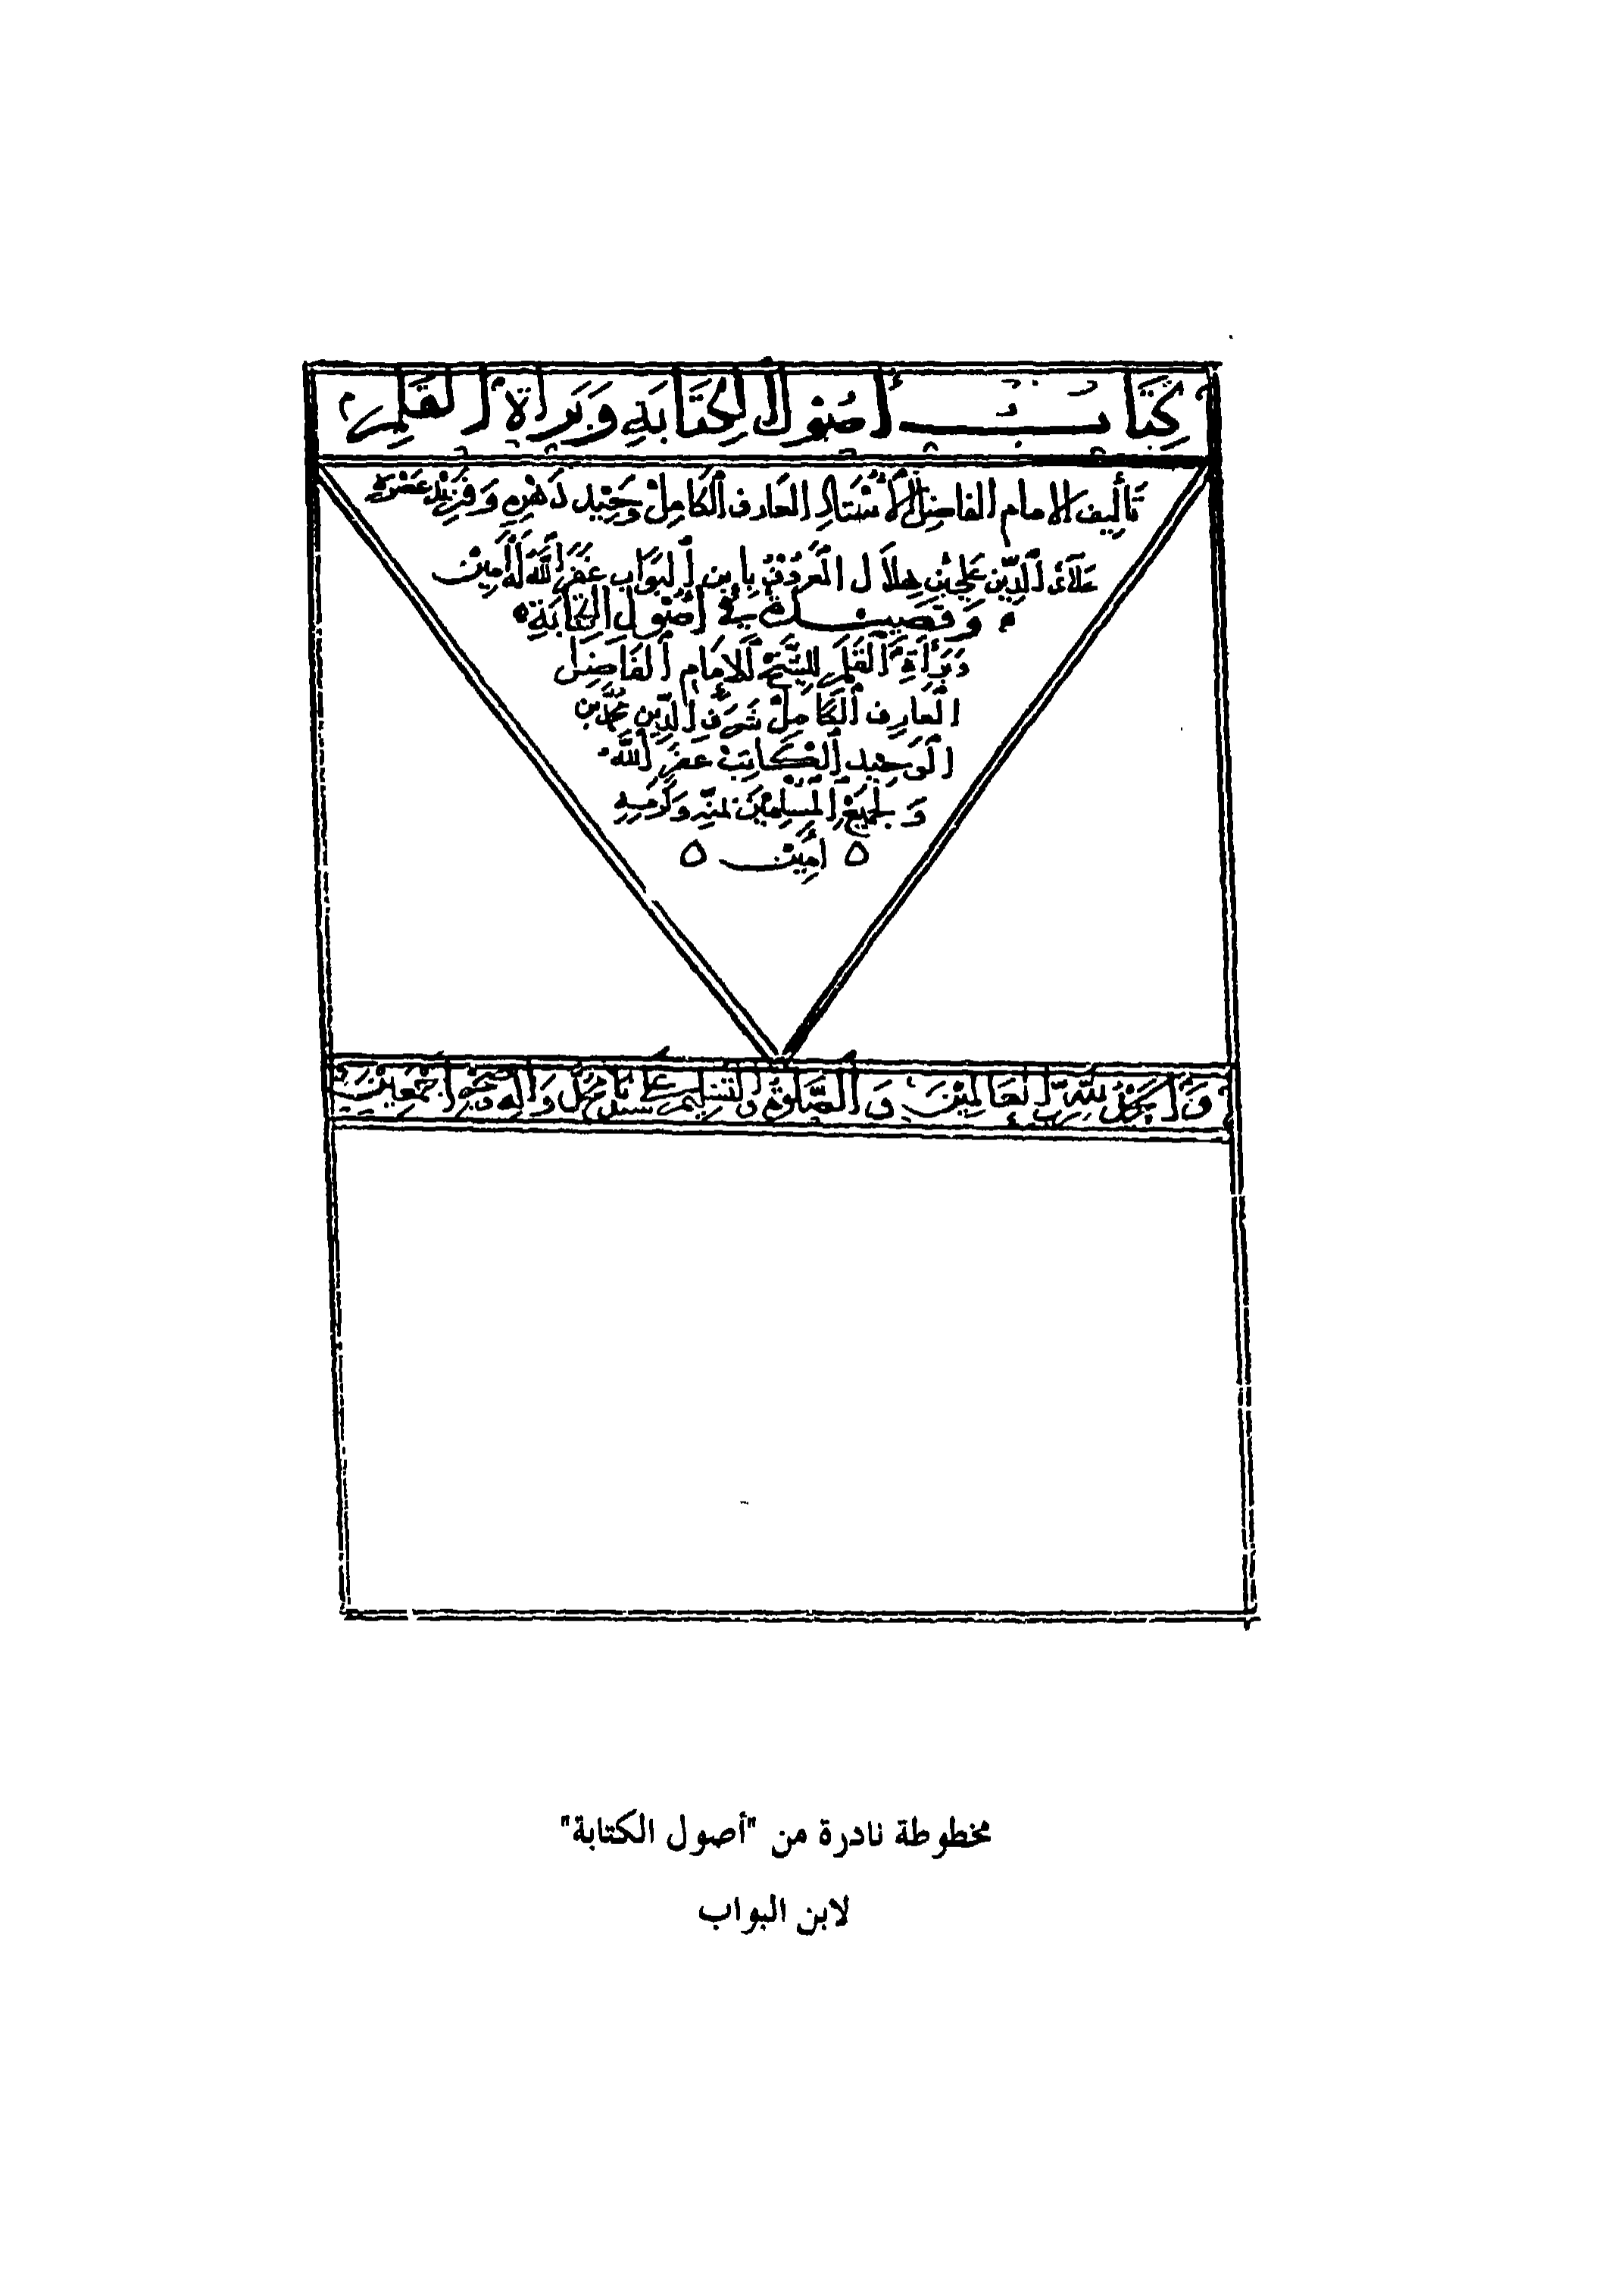 كِتَابُ أُصُول الكِتَابَةِ وَبَرَاة القَلَمِ
تَأليف الامام الفاضِل الأُسْتَاذ العَارف الكَامِلْ وَحِيْد دَهْرِهِ وَفَرِيْد عَصْرِهِ
عَلَاءُ الدِّين عَلِي بْن هِلَال المَعرُوْفُ بابن البَوَّاب غَفَرَ اللَّهُ لَهُ أمِيْن
وَقَصِيْدَة فِي أُصُول الكِتَابَةِ
وَبَرْأةِ القَلَمِ للشَّيْخ الامَام الفَاضِل
العَارِف الكَامِلْ شَرَف الدِّين محمَّد بن
الوَحِيد الكَاتِبْ غفَرَ اللَّه
وَلجَمِيْعِ المُسْلِمِيْنَ بمَنِّهِ وَكَرَمِهِ
ه أمِيْن ه
وَالحَمْدُ للَّهِ رَبِّ العَالمِيْنَ وَالصَّلوةُ وَالتَّسْلِيم عَلى سَيِّدِنَا محَمَّد وَآلِهِ وَصَحْبِهِ اَجْمَعِيْنَ
مخطوطة نادرة من "أصول الكتابة"
لابن البواب